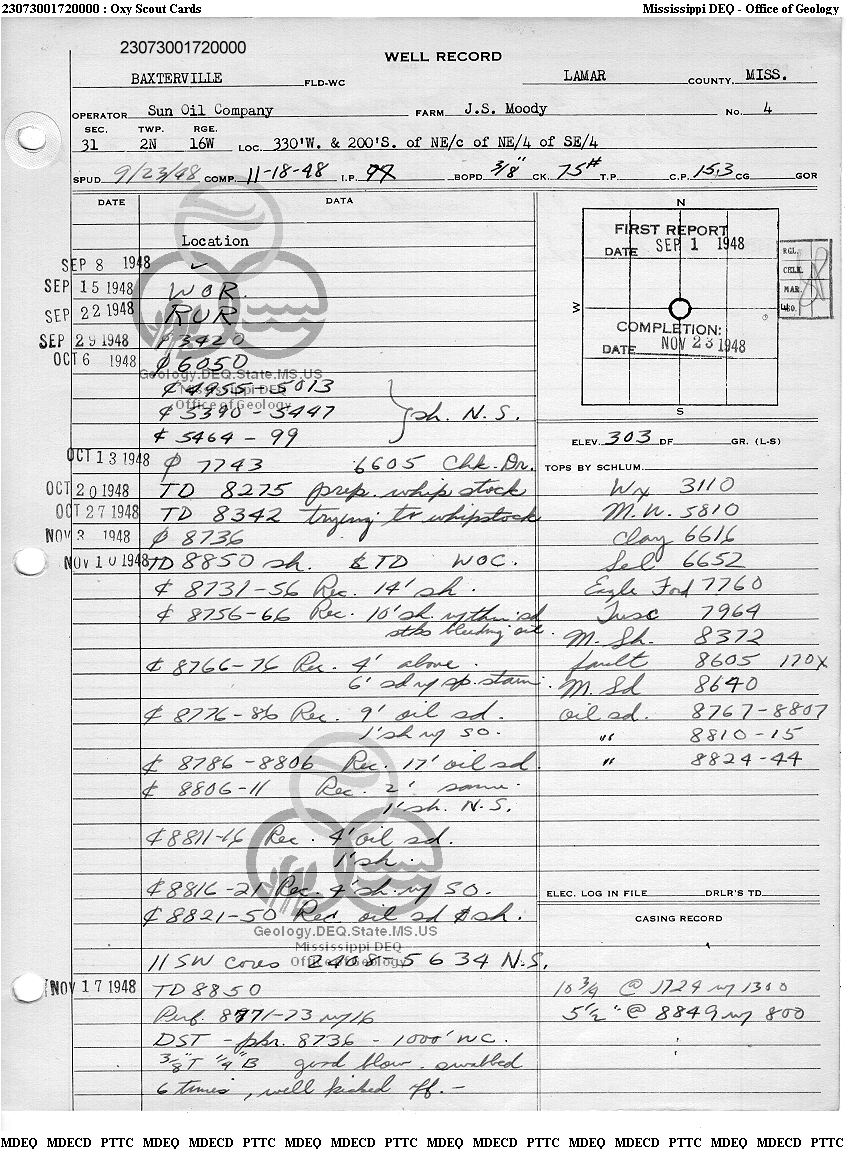 23073001720000 : Oxy Scout Cards
Mississippi DEQ - Office of Geology
23073001720000
WELL RECORD
BAXTERVILLE FLD-WC LAMAR COUNTY, MISS.
OPERATOR Sun Oil Company FARM J.S. Moody No. 4
SEC. TWP. RGE.
31 2N 16W LOC. 330'W. & 200'S. of NE/c of NE/4 of SE/4
SPUD 9/23/48 COMP. 11-18-48 I.P. 97 BOPD 3/8" CK. 75# T.P. C.P. 15.3 CG GOR
DATE DATA
Location
SEP 8 1948 ✓
SEP 15 1948 WOR.
SEP 22 1948 RUR
SEP 29 1948 3420
OCT 6 1948 6050
Geology.DEQ.State.MS.US
Mississippi DEQ
Office of Geology
₵ 4955-5013
₵ 5390-5447 } sh. N.S.
₵ 5464-99
OCT 13 1948 7743 6605 Chk. Dr.
OCT 20 1948 TD 8275 prep. whip stock
OCT 27 1948 TD 8342 trying to whipstock
NOV 3 1948 8736
NOV 10 1948 TD 8850 sh. & TD WOC.
₵ 8731-56 Rec. 14' sh.
₵ 8756-66 Rec. 10' sh. w/thin sd
stks bleeding oil.
₵ 8766-76 Rec. 4' above.
6' sd w/ sp. stain.
₵ 8776-86 Rec. 9' oil sd.
1' sh w/ SO.
₵ 8786-8806 Rec. 17' oil sd.
₵ 8806-11 Rec. 2' same.
1' sh. N.S.
₵ 8811-16 Rec. 4' oil sd.
1' sh.
₵ 8816-21 Rec. 4' sh. w/ SO.
₵ 8821-50 Rec oil sd & sh.
Geology.DEQ.State.MS.US
Mississippi DEQ
Office of Geology
11 SW cores 2408-5634 N.S.
NOV 17 1948 TD 8850
Perf. 8771-73 w/16
DST - pkr. 8736 - 1000' WC.
3/8" T 1/4" B good blow. swabbed
6 times, well kicked off.-
N
FIRST REPORT
DATE SEP 1 1948
W
COMPLETION:
DATE NOV 23 1948
S
RGL.
CHLK.
MAR.
ELEV. 303 DF GR. (L-S)
TOPS BY SCHLUM.
Wx 3110
M.W. 5810
Clay 6616
Sel 6652
Eagle Ford 7760
Tusc 7964
M. Sh. 8372
fault 8605 170x
M. Sd 8640
oil sd. 8767-8807
" 8810-15
" 8824-44
ELEC. LOG IN FILE DRLR'S TD
CASING RECORD
10 3/4 @ 1729 w/ 1300
5 1/2" @ 8849 w/ 800
MDEQ MDECD PTTC MDEQ MDECD PTTC MDEQ MDECD PTTC MDEQ MDECD PTTC MDEQ MDECD PTTC MDEQ MDECD PTTC